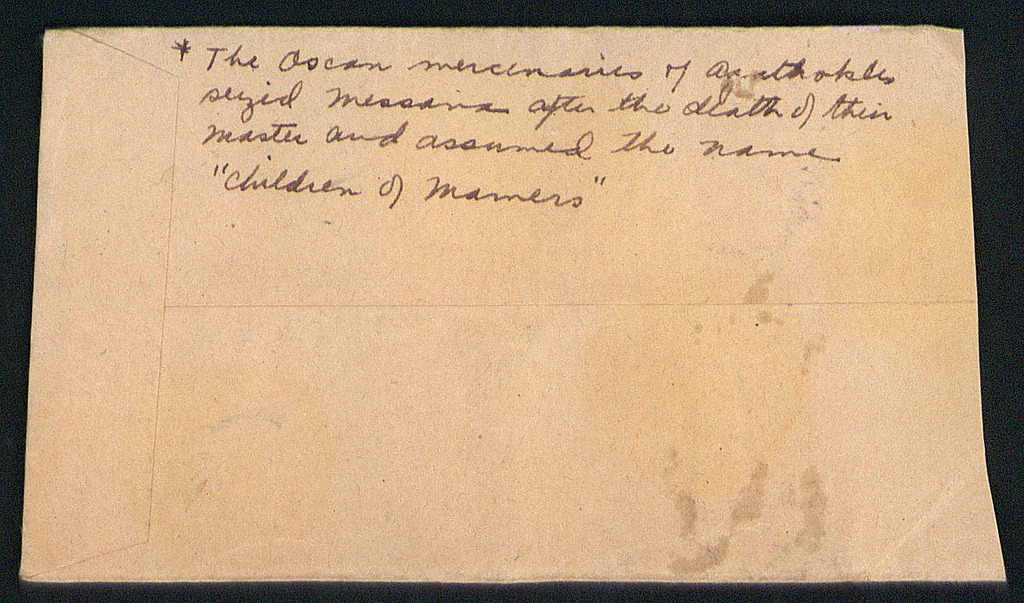 * The Oscan mercenaries of Agathokles
seized Messana after the death of their
master and assumed the name
"Children of Mamers"